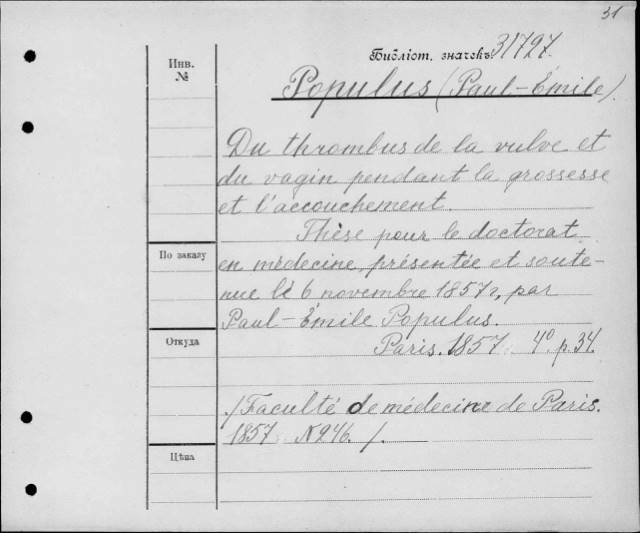 31
Инв.
№
Библіот. значекъ 31797.
Populus (Paul-Émile).
Du thrombus de la vulve et
du vagin pendant la grossesse
et l'accouchement.
Thèse pour le doctorat
По заказу
en médecine, présentée et soute-
nue le 6 novembre 1857 г, par
Paul-Émile Populus.
Откуда
Paris. 1857. 4° p. 34.
/Faculté de médecine de Paris.
1857. N 246. /.
Цѣна